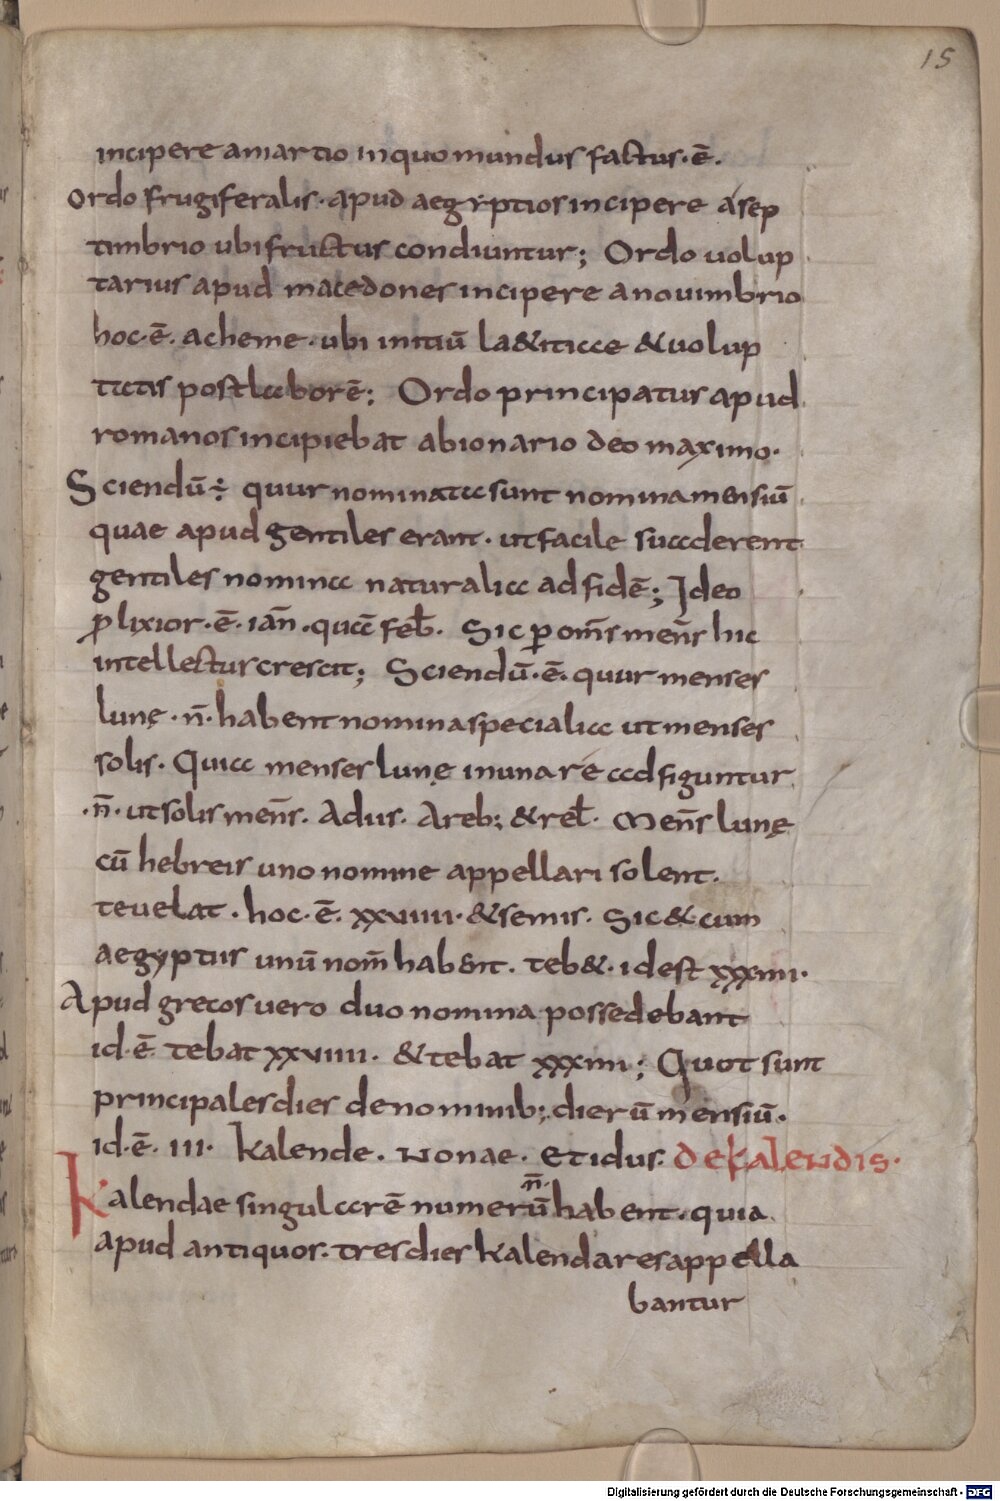 15
incipere amartio inquo mundus factus·ē·
Ordo frugiferalis· apud aegyptios incipere asep
timbrio ubi fructus condiuntur; Ordo uolup
tarius apud macedones incipere anouimbrio
hoc·ē· acheme· ubi initiū la&iticce &uolup
tatis post laborē; Ordo principatus apud
romanos incipiebat abionario deo maximo·
Sciendū÷ quur nominata sunt nomina mensiū
quae apud gentiles erant· ut facile succderent
gentiles nomina naturalia ad fidē; Ideo
plixior·ē· iañ· quā feb̄· Sic p om̄s meñs hic
intellectus crescit; Sciendū·ē· quur menses
lunę· n̄· habent nomina specialia ut menses
solis· Quia menses lunę inuna re adfiguntur
·n̄· ut solis meñs· Adus· Areb; &rel̄· Meñs lunę
cū hebreis uno nomine appellari solent·
teuelat· hoc·ē· xxuiiii· &semis· Sic&cum
aegyptiis unū nom̄ hab&nt· teb&· idest xxxiiii·
Apud grecos uero duo nomina possedebant
id·ē· tebat xxuiiii· &tebat xxxiiii; Quot sunt
principales dies denominib; dierū mensiū·
id·ē· III· Kalende· Nonae· Etidus· DEKALENDIS·
Kalendae singularē numerū n̄· habent· quia
apud antiquos· tres dies kalendares appella
bantur
Digitalisierung gefördert durch die Deutsche Forschungsgemeinschaft - DFG